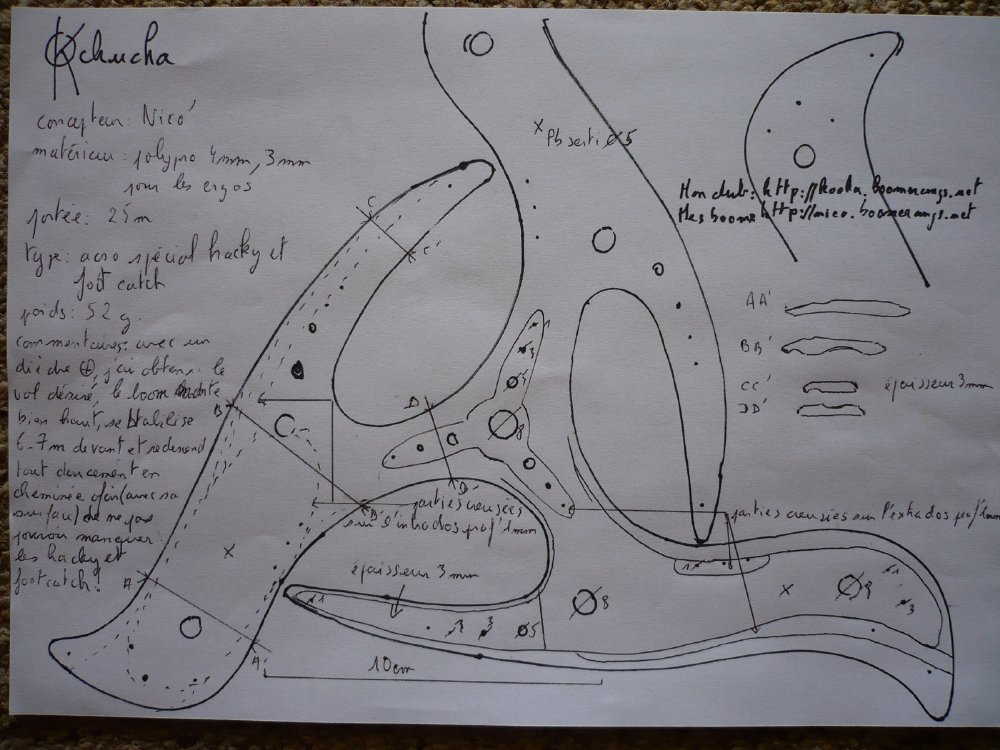 Kchucha
concepteur: Nico'
matériau: polypro 4mm, 3mm
pour les ergos
portée: 25m
type: acro spécial hacky et
foot catch
poids: 52 g
commentaires: avec un
dièdre ⊕, j'ai obtenu le
vol désiré, le boom monte
bien haut, se stabilise
6-7m devant et redescend
tout doucement en
cheminée afin (avec sa
surface) de ne pas
pouvoir manquer
les hacky et
footcatch!
x Pb serti ø5
Mon club: http://kooka.boomerangs.net
Mes booms http://nico.boomerangs.net
AA'
BB'
CC' épaisseur 3mm
DD'
C
C'
B
B'
D
D'
A
A'
3
ø5
ø8
parties creusées
sur l'intrados prof 1mm
parties creusées sur l'extrados prof 1mm
épaisseur 3mm
1
2
3
ø5
ø8
1
ø8
1
3
10cm